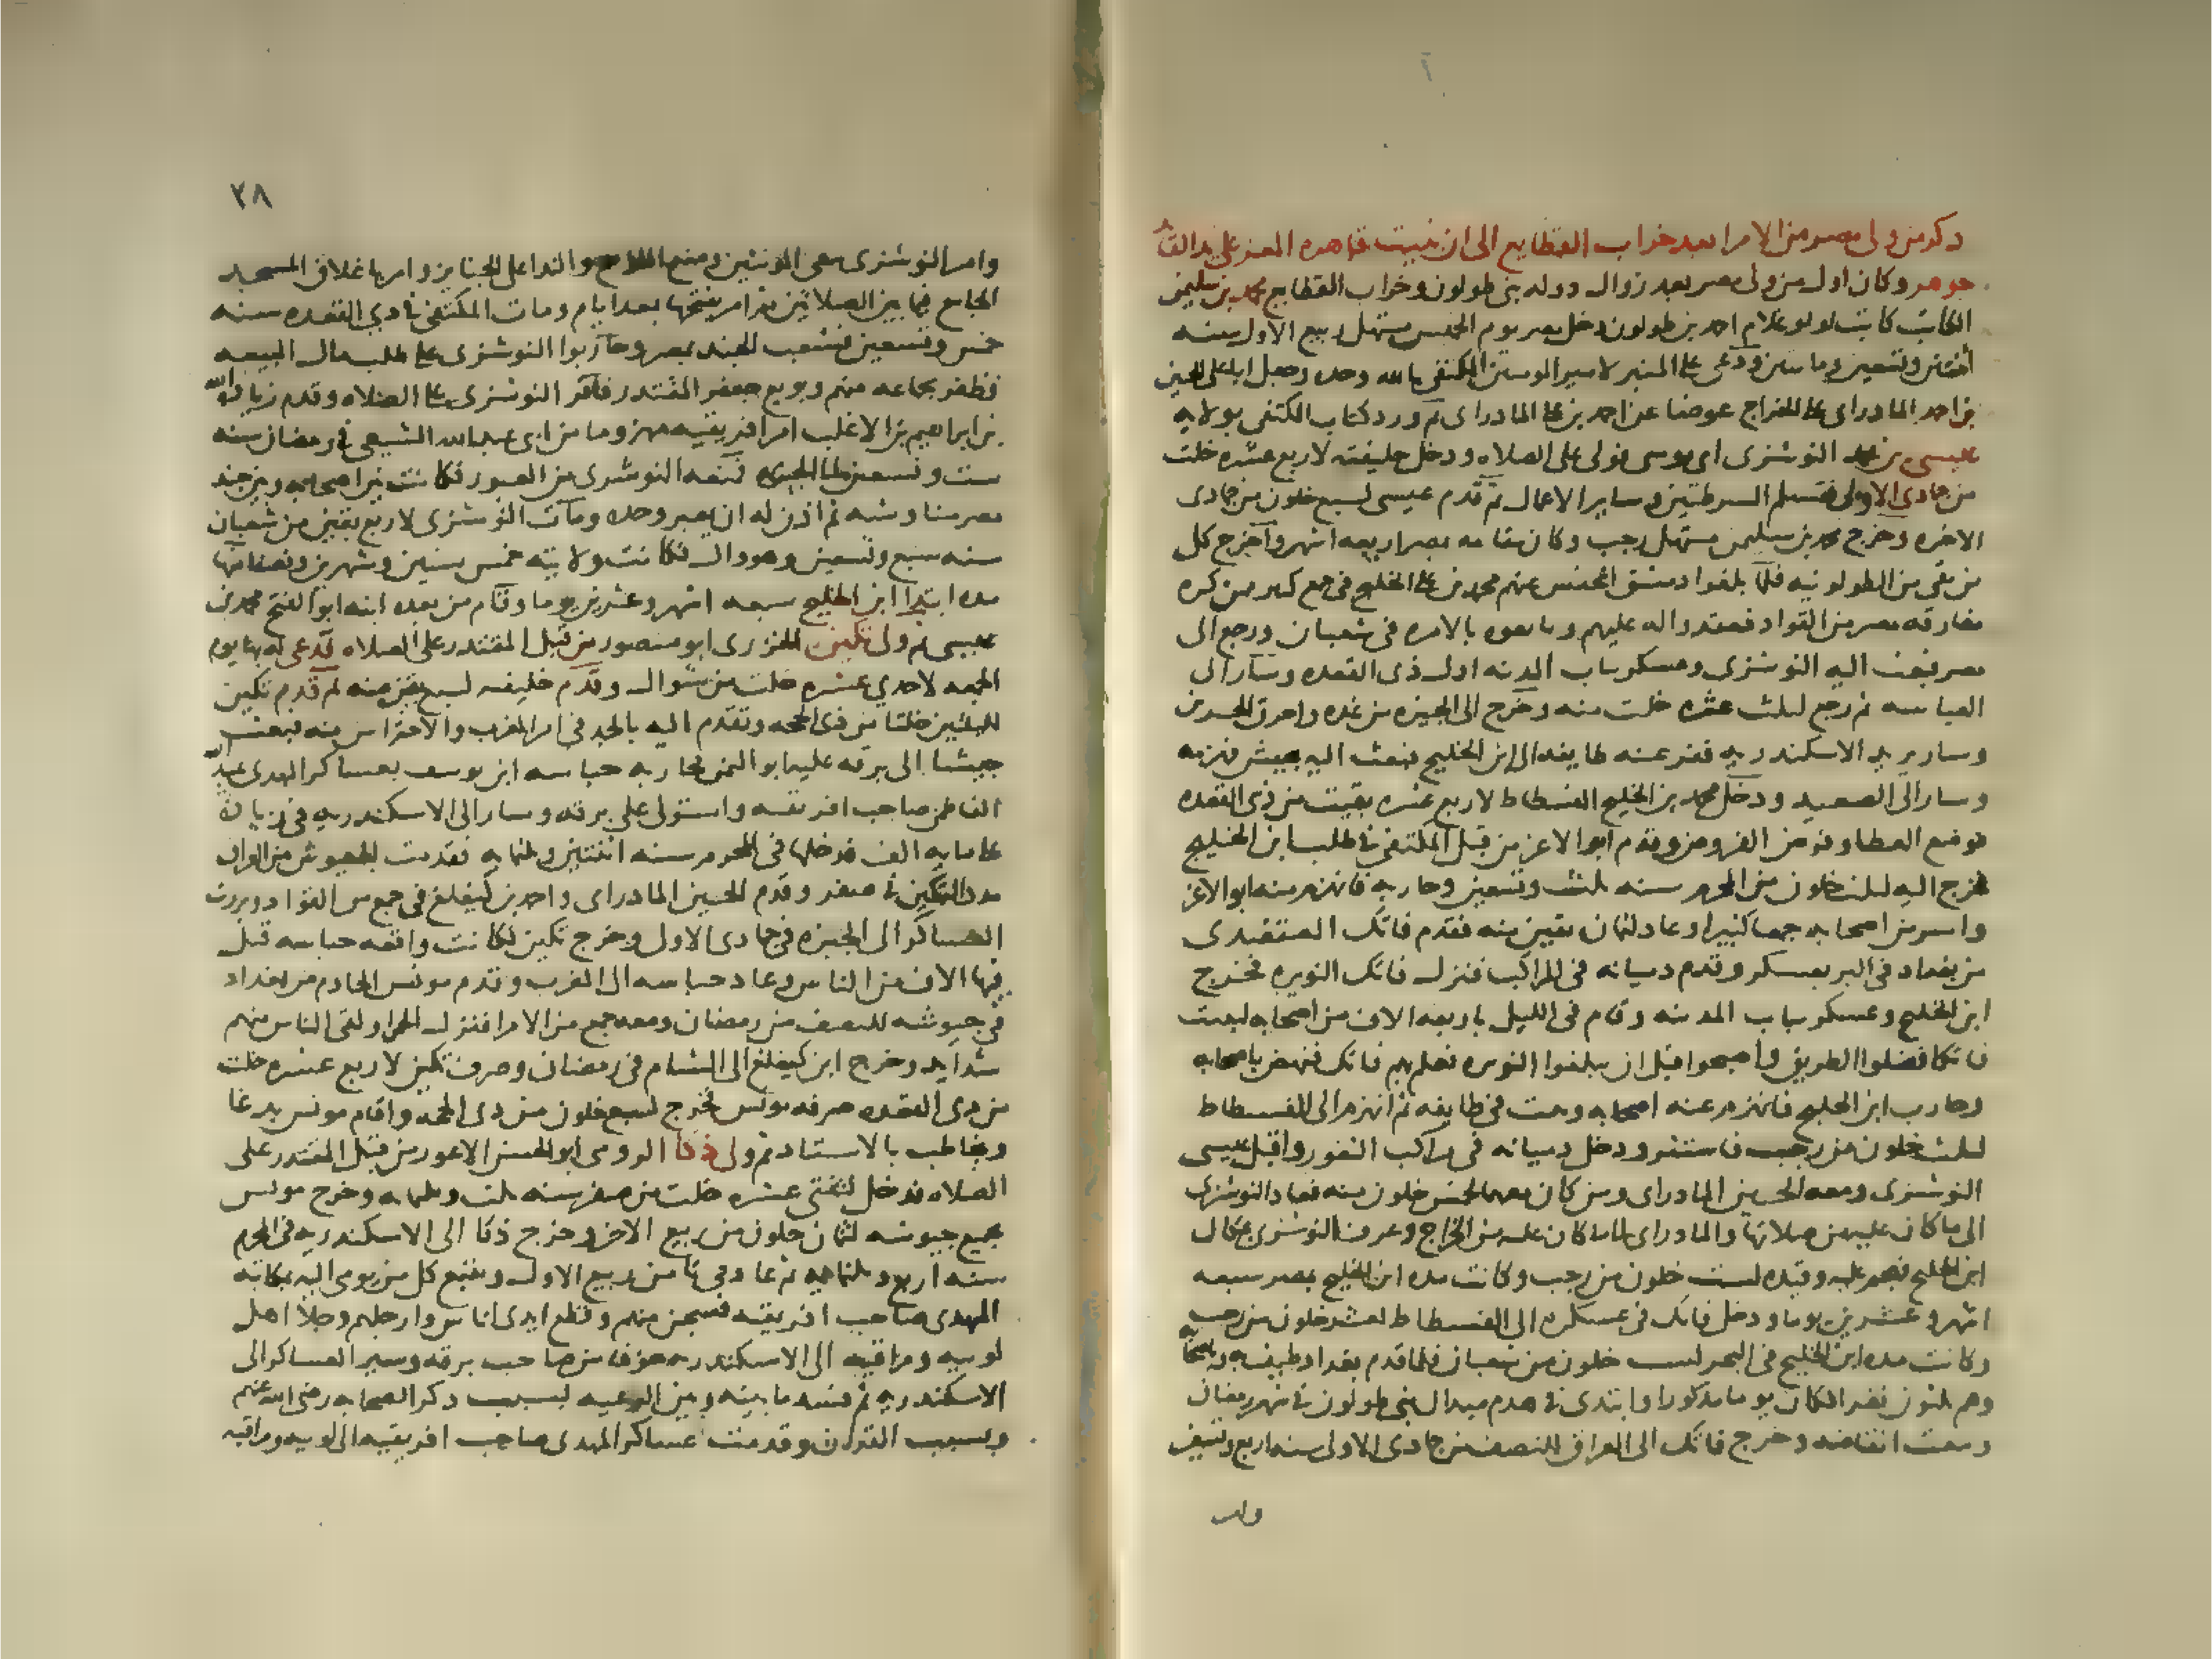 ذكر من ولى مصر من الامرا بعد خراب القطايع الى ان بنيت قاهره المعز على يد القائد
جوهر وكان اول من ولى مصر بعد زوال دوله بنى طولون وخراب القطايع محمد بن سليمن
الكاتب كاتب لولو غلام احمد بن طولون دخل مصر يوم الخميس مستهل ربيع الاول سنه
اثنتين وتسعين وماتين ودعى على المنبر لامير المومنين المكتفى بالله وحده وجعل ابا على الحسين
بن احمد المادراى على الخراج عوضا عن احمد بن على المادراى ثم ورد كتاب المكتفى بولايه
عيسى بن محمد النوشزى ابى موسى فولى على الصلاه ودخل خليفته لاربع عشره خلت
من جمادى الاولى فتسلم الشرطتين وساير الاعمال ثم قدم عيسى لسبع خلون من جمادى
الاخره وخرج محمد بن سليمن مستهل رجب وكان مقامه بمصر اربعه اشهر واخرج كل
من بقى من الطولونيه فلما بلغوا دمشق انخنس عنهم محمد بن على الخليج فى جمع كبير ممن كره
مفارقه مصر من القواد فعقدوا له عليهم وبايعوه بالامره فى شعبان ورجع الى
مصر فبعث اليه النوشزى وعسكر بباب المدينه اول ذى القعده وسار الى
العباسه ثم رجع لثلث عشره خلت منه وخرج الى الجيزه من غده واحرق الجسرين
وسار يريد الاسكندريه ففر عنه طايفه الى ابن الخليج فبعث اليه بجيش فهزمه
وسار الى الصعيد ودخل محمد بن الخليج الفسطاط لاربع عشره بقيت من ذى القعده
فوضع العطا وفرض الفروض وقدم ابو الاغر من قبل المكتفى فى طلب ابن الخليج
فخرج اليه لثلث خلون من المحرم سنه ثلث وتسعين وحاربه فانهزم منه ابو الاغر
واسر من اصحابه جمعا كثيرا وعاد لثمان بقين منه فقدم فاتك المعتضدى
من بغداد فى البر بعسكر وقدم دميانه فى المراكب فنزل فاتك النويره فخرج
ابن الخليج وعسكر بباب المدينه وقام فى الليل باربعه الاف من اصحابه ليبيت
فاتكا فضلوا الطريق واصبحوا قبل ان يبلغوا النويره فعلم بهم فاتك فنهض باصحابه
وحارب ابن الخليج فانهزم عنه اصحابه وثبت فى طايفه ثم انهزم الى الفسطاط
لثلث خلون من رجب فاستتر ودخل دميانه فى مراكب الثغور واقبل عيسى
النوشزى ومعه الحسين المادراى ومن كان معهما لخمس خلون منه فعاد النوشزى
الى ما كان عليه من صلاتها والمادراى الى ما كان عليه من الخراج وعرف النوشزى بمكان
ابن الخليج فهجم عليه وقيده لست خلون من رجب وكانت مده ابن الخليج بمصر سبعه
اشهر وعشرين يوما ودخل فاتك فى عسكره الى الفسطاط لعشر خلون من رجب
وكانت مده ابن الخليج فى البحر لست خلون من شعبان فلما قدم بغداد طيف به وباصحابه
وهم ثلثون نفر افكان يوما مذكورا وابتدى فى هدم ميدان بنى طولون فى شهر رمضان
وبيعت انقاضه وخرج فاتك الى العراق للنصف من جمادى الاولى سنه اربع وتسعين
وامر
٣٨
وامر النوشزى بنفى المونثين ومنع النوح والندا على الجنايز وامر باغلاق المسجد
الجامع فيما بين الصلاتين ثم امر بفتحها بعد ايام ومات المكتفى فى ذى القعده سنه
خمس وتسعين فشغب الجند بمصر وحاربوا النوشزى على طلب مال البيعه
فظفر بجماعه منهم وبويع جعفر المقتدر فاقر النوشزى على الصلاه وقدم زياده الله
بن ابراهيم بن الاغلب امير افريقيه مهزوما من ابى عبد الله الشيعى فى رمضان سنه
ست وتسعين الى الجيزه فمنعه النوشزى من العبور فكانت بين اصحابه وبين جند
مصر مناوشه ثم اذن له ان يعبر وحده ومات النوشزى لاربع بقين من شعبان
سنه سبع وتسعين وهو وال فكانت ولايته خمس سنين وشهرين ونصفا منها
مده ابن الخليج سبعه اشهر وعشرين يوما وقام من بعده ابنه ابو الفتح محمد بن
عيسى ثم ولى تكين الخزرى ابو منصور من قبل المقتدر على الصلاه فدعى له بها يوم
الجمعه لاحدى عشره خلت من شوال وقدم خليفته لسبع بقين منه ثم قدم تكين
لليلتين خلتا من ذى الحجه وتقدم اليه بالجد فى امر المغرب والاحتراس منه فبعث
جيشا الى برقه عليه ابو اليمنى فحاربه حباسه ابن يوسف بعساكر المهدى عبيد الله
الفاطمى صاحب افريقيه واستولى على برقه وسار الى الاسكندريه فى زياده
على مايه الف فدخلها فى المحرم سنه اثنتين وثلثمايه فقدمت الجيوش من العراق
مددا لتكين فى صفر وقدم الحسين المادراى واحمد بن كيغلغ فى جمع من القواد وبرزت
العساكر الى الجيزه فى جمادى الاولى وخرج تكين فكانت واقعه حباسه قتل
فيها الاف من الناس وعاد حباسه الى المغرب وقدم مونس الخادم من بغداد
فى جيوشه للنصف من رمضان ومعه جمع من الامرا فنزل الحمرا ولقى الناس منهم
شدايد وخرج ابن كيغلغ الى الشام فى رمضان وصرف تكين لاربع عشره خلت
من ذى القعده صرفه مونس فخرج لسبع خلون من ذى الحجه واقام مونس يدعا
ويخاطب بالاستاد ثم ولى ذكا الرومى ابو الحسن الاعور من قبل المقتدر على
الصلاه فدخل لثنتى عشره خلت من صفر سنه ثلث وثلثمايه وخرج مونس
بجميع جيوشه لثمان خلون من ربيع الاخر وخرج ذكا الى الاسكندريه فى المحرم
سنه اربع وثلثمايه ثم عاد فى ثامن ربيع الاول وتتبع كل من يومى اليه بمكاتبه
المهدى صاحب افريقيه فسجن منهم وقطع ايدى اناس وارجلهم وجلا اهل
لوبيه ومراقيه الى الاسكندريه خوفا من صاحب برقه وسير العساكر الى
الاسكندريه ثم فسد ما بينه وبين الرعيه بسبب ذكر الصحابه رضى الله عنهم
وبسبب القران وقدمت عساكر المهدى صاحب افريقيه الى لوبيه ومراقيه